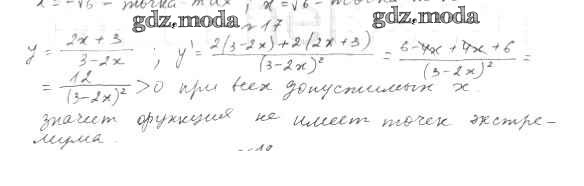 x = -√6 - точка max ; x = √6 - точка
gdz.moda №17 gdz.moda
y = \frac{2x+3}{3-2x} ; y' = \frac{2(3-2x)+2(2x+3)}{(3-2x)^2} = \frac{6-4x+4x+6}{(3-2x)^2} =
= \frac{12}{(3-2x)^2} > 0 при всех допустимых x.
значит функция не имеет точек экстре-
мума.